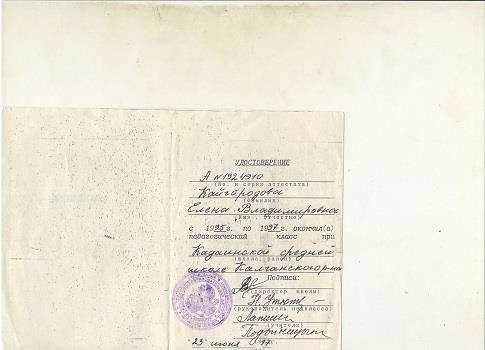 УДОСТОВЕРЕНИЕ
А №1924910
(№. и серия аттестата)
Кайгородова
(фамилия)
Елена Владимировна
(имя, отчество)
с 1995г. по 1997г. окончил(а)
педагогический класс при
Кадаинской средней
(школа, район)
школе Калганского р-на
Подписи:
(директор школы)
(руководитель педкласса)
(учителя)
23 июня 97г.